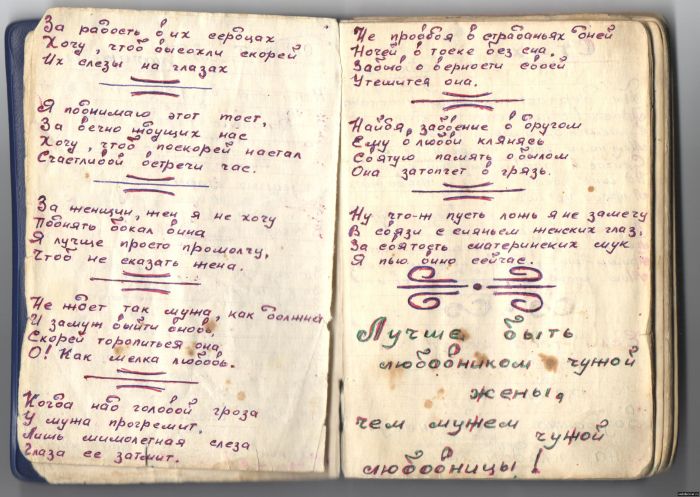 За радость в их сердцах
Хочу, чтоб высохли скорей
Их слезы на глазах
Я поднимаю этот тост,
За вечно ждущих нас
Хочу, чтоб поскорей настал
Счастливой встречи час.
За женщин, жен я не хочу
Поднять бокал вина
Я лучше просто промолчу,
Чтоб не сказать жена.
Не ждет так мужа, как должна
И замуж выйти вновь
Скорей торопиться она
О! Как мелка любовь.
Когда над головой гроза
У мужа прогремит.
Лишь мимолетная слеза
Глаза ее затмит.
Не проводя в страданьях дней
Ночей в тоске без сна.
Забыв о верности своей
Утешится она.
Найдя забвение в другом
Ему о любви клянясь
Святую память о былом
Она затопчет в грязь.
Ну что-ж пусть ложь я не замечу
В связи с сияньем женских глаз,
За святость материнских мук
Я пью вино сейчас.
Лучше быть
любовником чужой
жены,
чем мужем
чужой
любовницы!